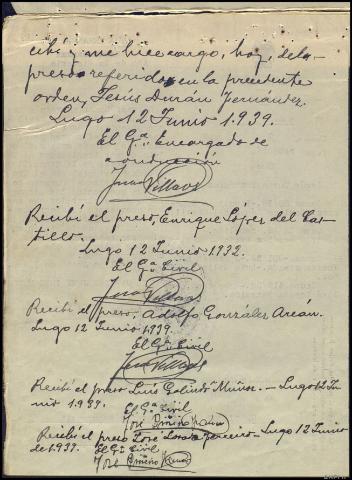 cibí y me hice cargo, hoy, del o
preso referido en la precedente
orden, Jesús Durán Fernández.
Lugo 12 Junio 1.939.
El Gª. Encargado de
conducción
Juan Villaos
Recibí el preso, Enrique López del Cas-
tillo.
Lugo 12 Junio 1932.
El Gª Civil
Recibí el preso, Adolfo González Areán.
Lugo 12 Junio 1939.
El Gª Civil
Recibí el preso Luís Galindo Muñoz. – Lugo 12 Ju-
nio 1.939.
El Gª. Civil
José
Recibí el preso José – Lugo 12 Junio
de 1.939. El Gª Civil
José